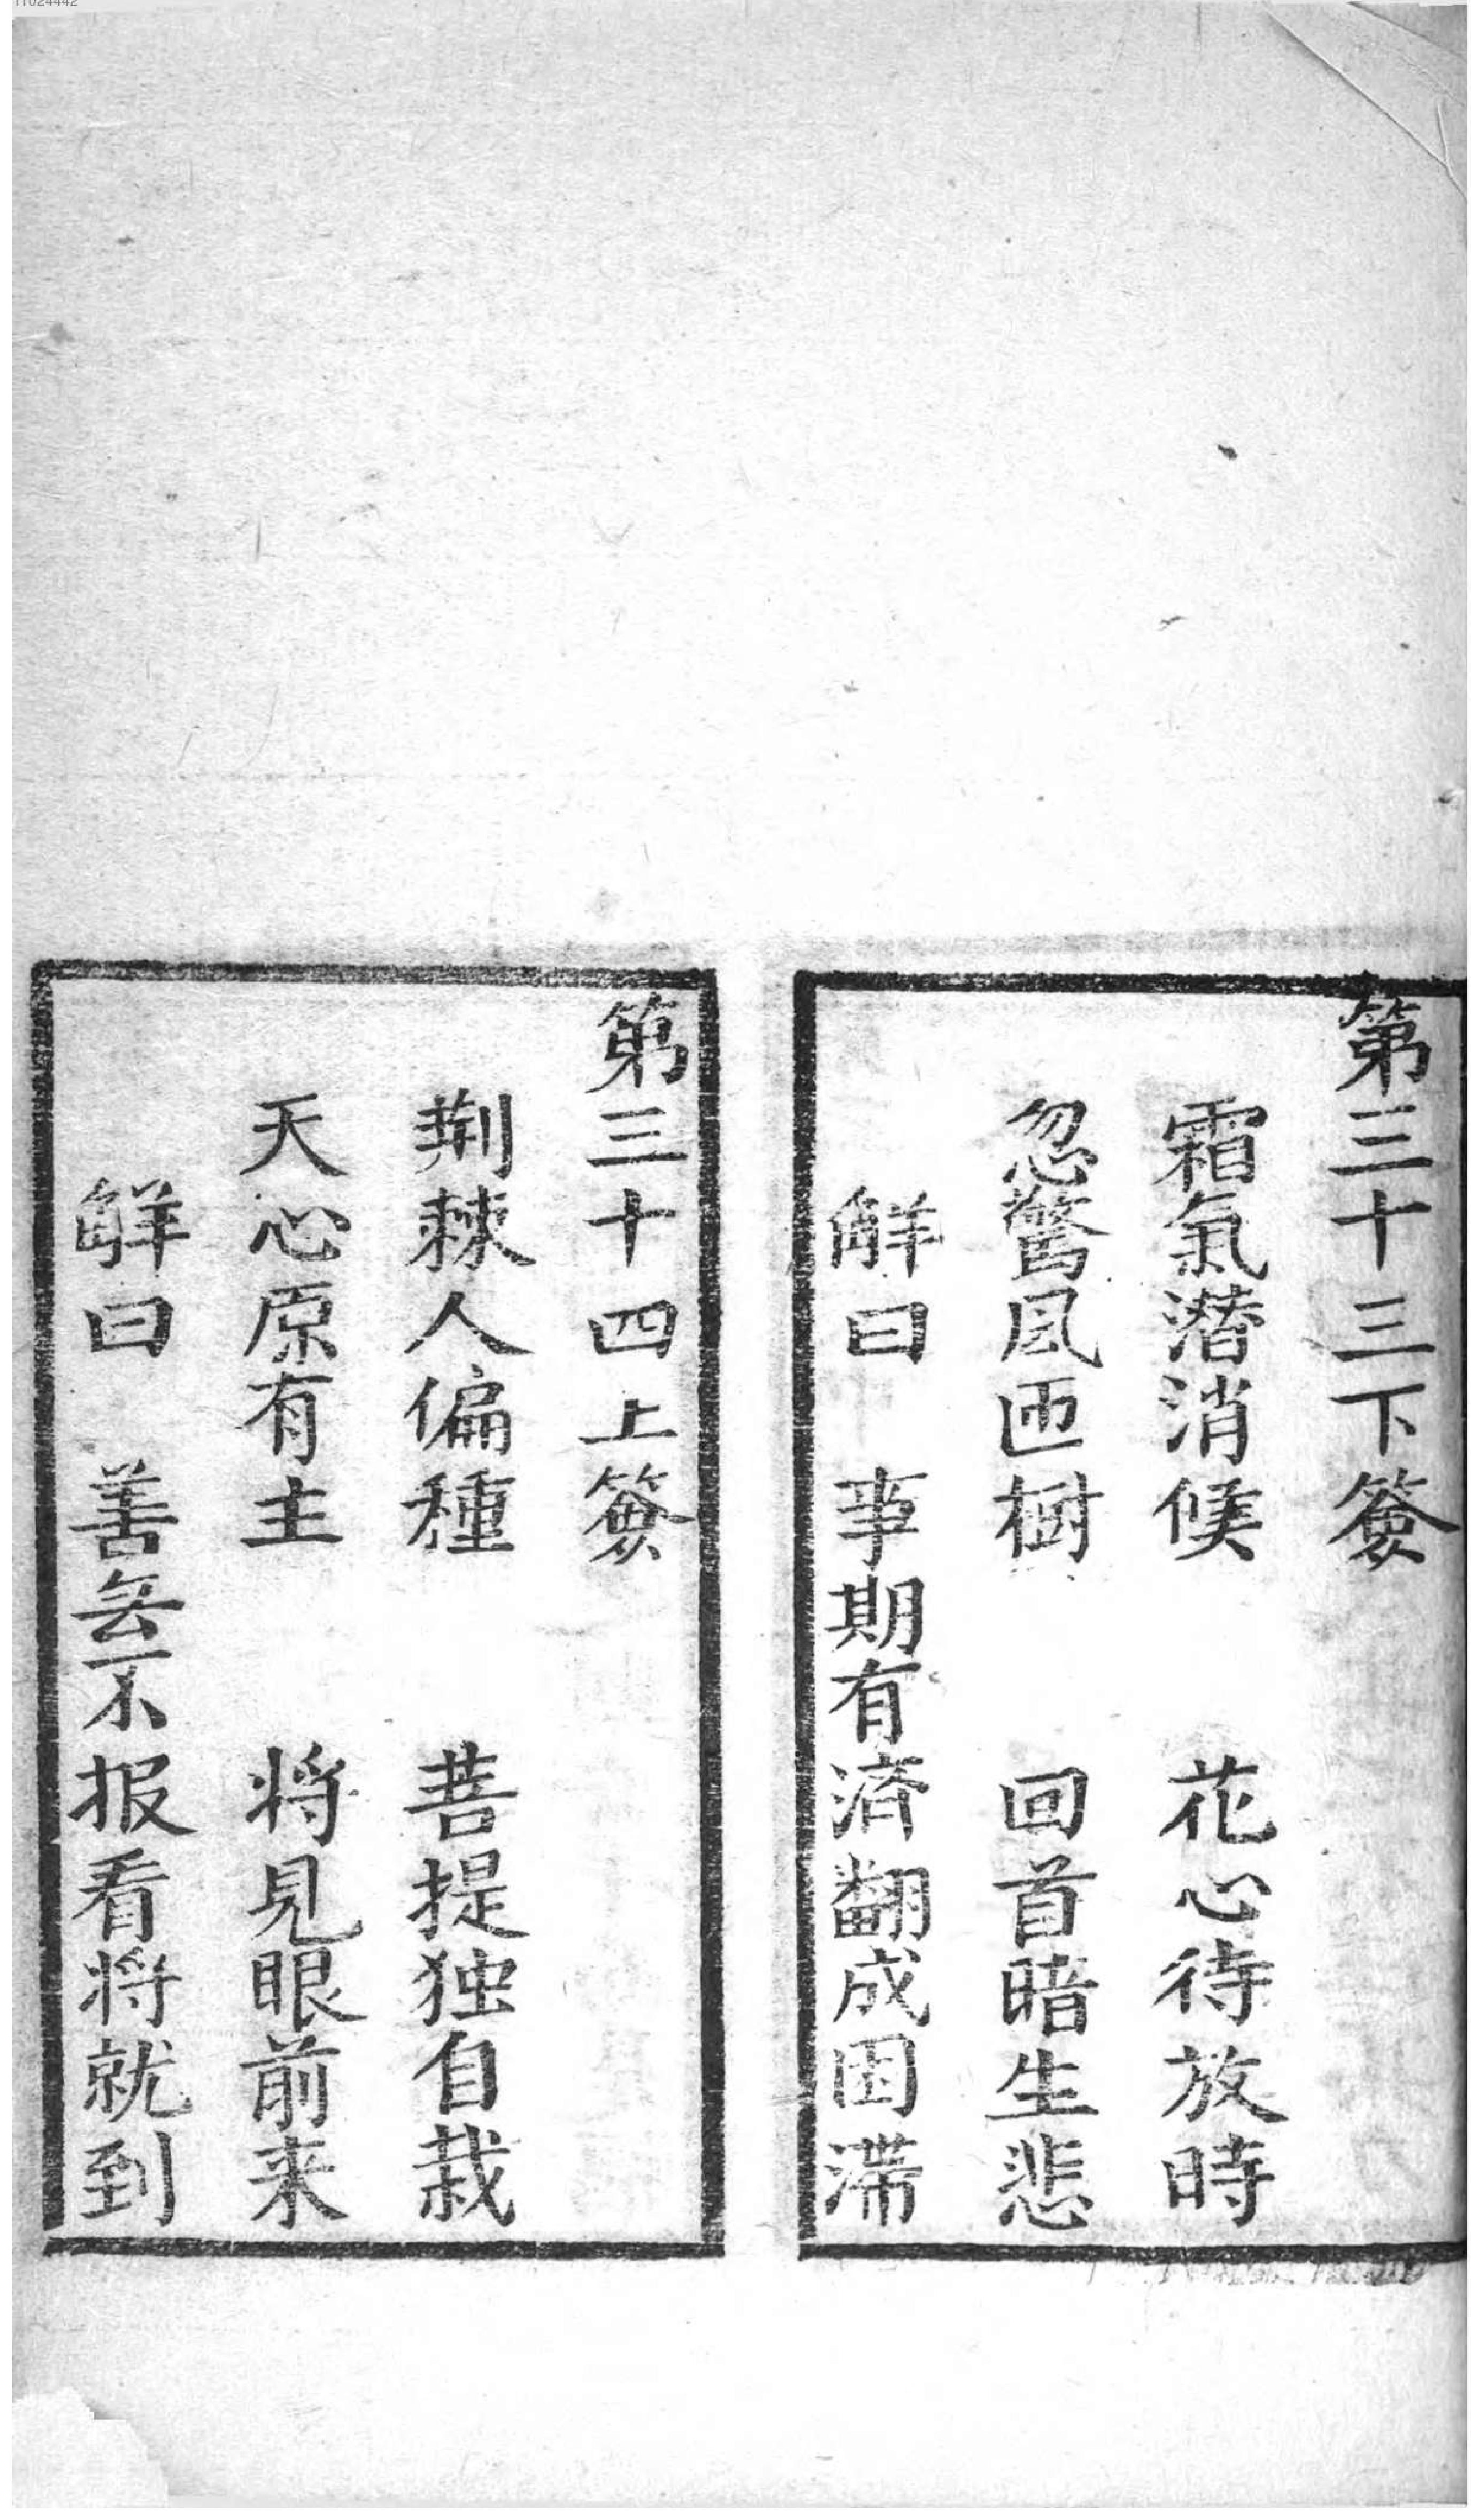 第三十三下簽
霜氣潛消候　花心待放時
忽驚風匝樹　回首暗生悲
觧曰　事期有済翻成困滯
第三十四上簽
荆棘人偏種　菩提独自栽
天心原有主　将見眼前来
觧曰　善无不报看将就到